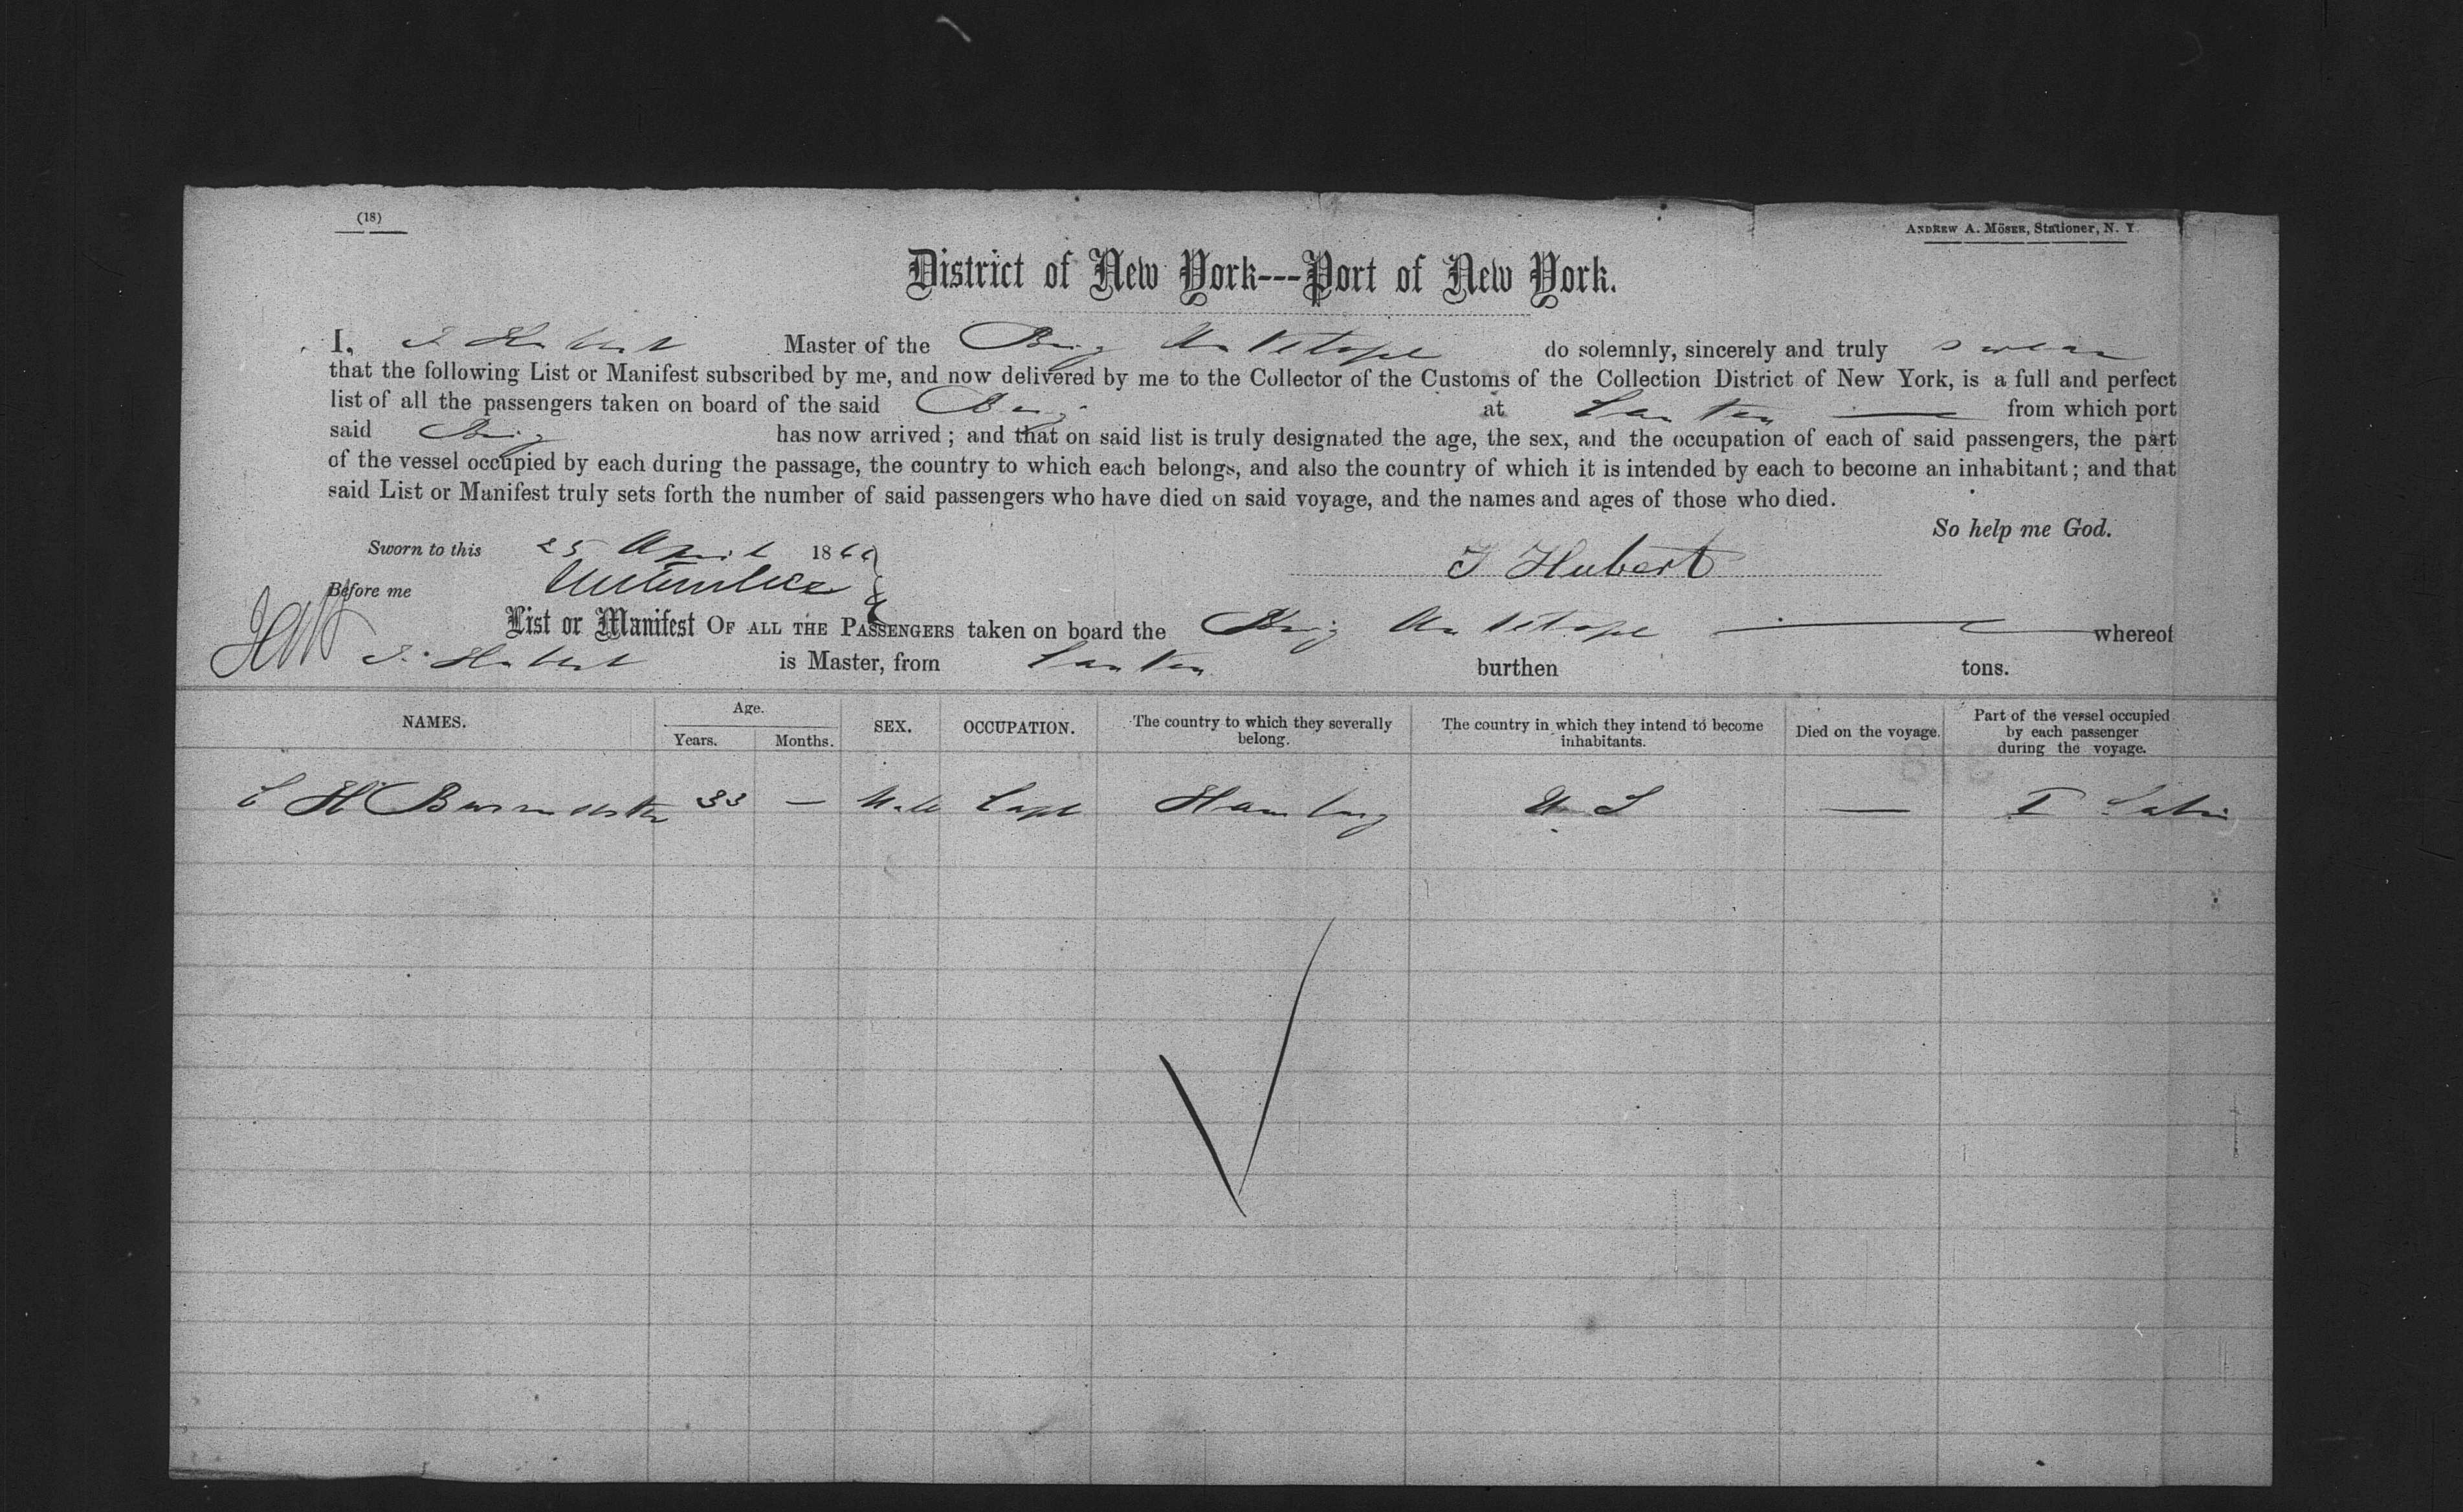 (18)
ANDREW A. MÖSER, Stationer, N. Y.
District of New York---Port of New York.
I, J Hubert Master of the Brig Antelope do solemnly, sincerely and truly swear
that the following List or Manifest subscribed by me, and now delivered by me to the Collector of the Customs of the Collection District of New York, is a full and perfect
list of all the passengers taken on board of the said Brig at Canton from which port
said Brig has now arrived; and that on said list is truly designated the age, the sex, and the occupation of each of said passengers, the part
of the vessel occupied by each during the passage, the country to which each belongs, and also the country of which it is intended by each to become an inhabitant; and that
said List or Manifest truly sets forth the number of said passengers who have died on said voyage, and the names and ages of those who died.
So help me God.
Sworn to this 25 April 1866
J Hubert
Before me
List or Manifest OF ALL THE PASSENGERS taken on board the Brig Antelope whereof
J. Hubert is Master, from Canton burthen tons.
NAMES.
Age.
Years.
Months.
SEX.
OCCUPATION.
The country to which they severally
belong.
The country in which they intend to become
inhabitants.
Died on the voyage.
Part of the vessel occupied
by each passenger
during the voyage.
C H Burmester 33 — Male Capt Hamburg U S — I Cabin